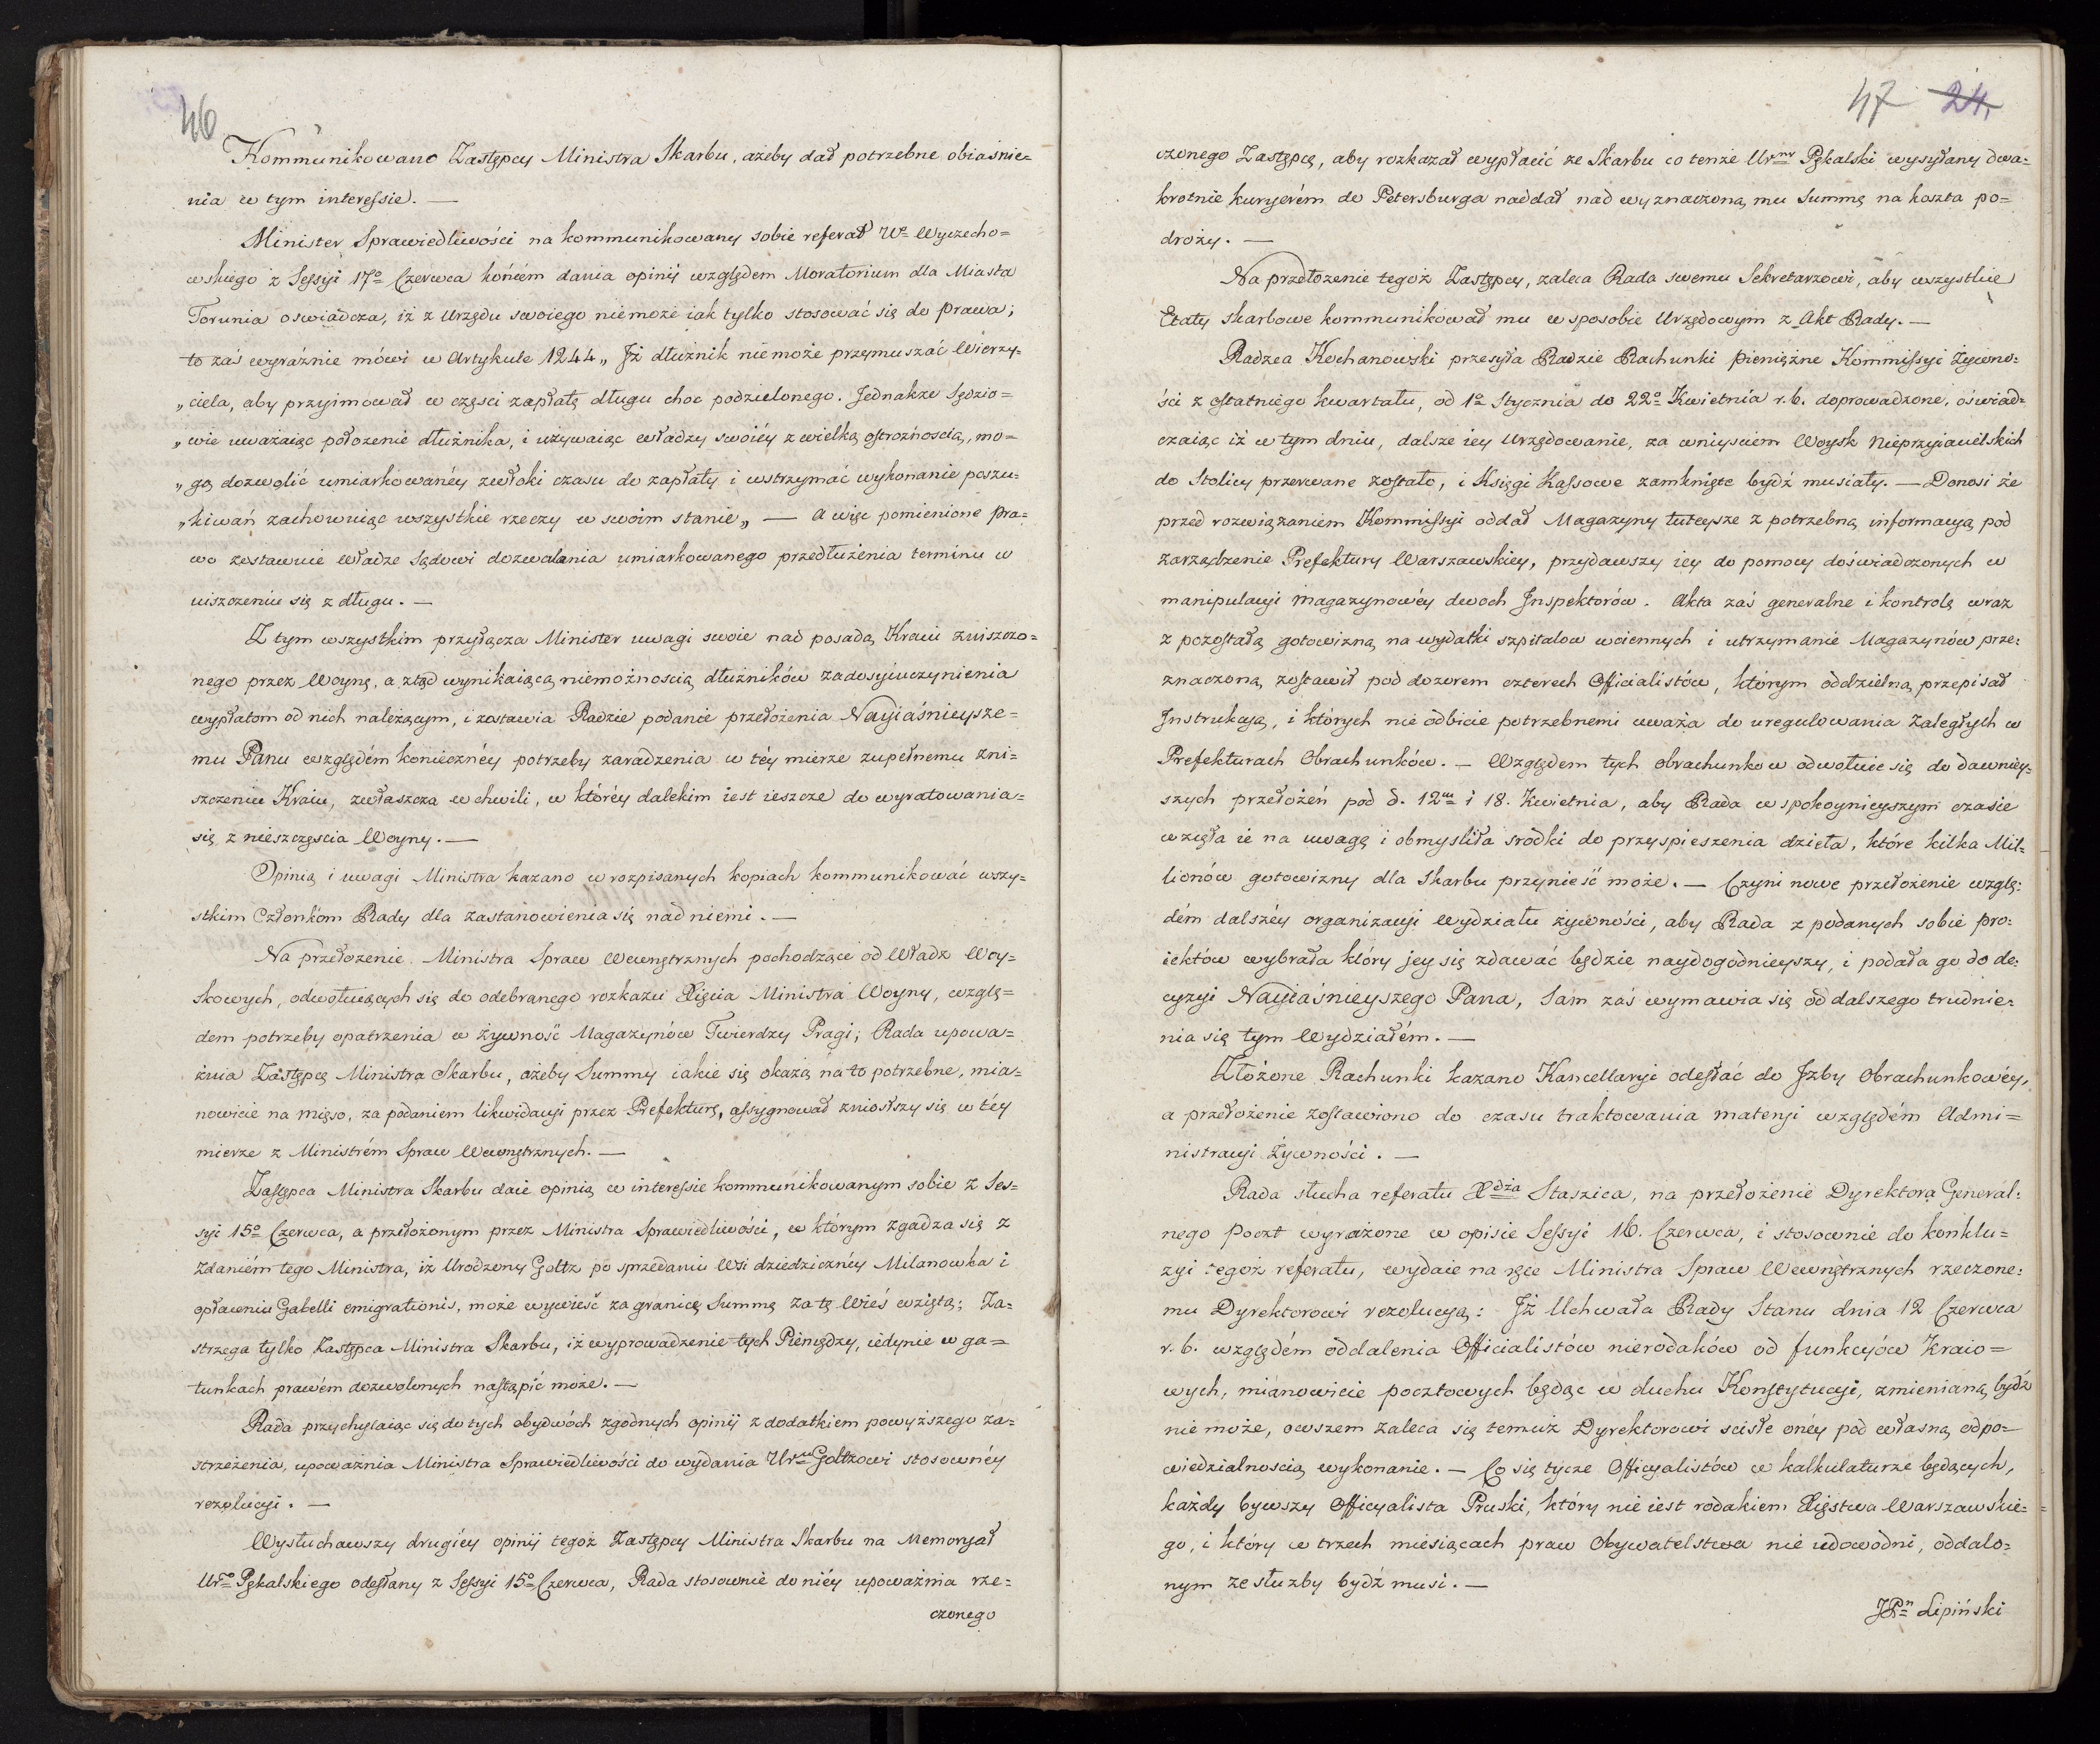 46
Kommunikowano Zastępcy Ministra Skarbu, ażeby dał potrzebne obiaśnie=
nia w tym interessie. —
Minister Sprawiedliwości na kommunikowany sobie referat Wo Wyczecho=
wskiego z Sessyi 17o Czerwca końcem dania opinij względem Moratorium dla Miasta
Torunia oswiadcza, iż z Urzędu swoiego niemoże iak tylko stosować się do prawa;
to zaś wyraźnie mówi w Artykule 1244 „ Jż dłużnik niemoże przymuszać Wierzy=
„ciela, aby przyimował w części zapłatę długu choc podzielonego. Jednakże Sędzio=
„wie uważaiąc położenie dłużnika, i używaiąc władzy swoiéy z wielką ostrożnoscią, mo=
„gą dozwolić umiarkowanéy zwłoki czasu do zapłaty i wstrzymać wykonanie poszu=
„kiwań zachowuiąc wszystkie rzeczy w swoim stanie„ — A więc pomienione pra=
wo zostawuie władze Sądowi dozwalania umiarkowanego przedłużenia terminu w
uiszczeniu się z długu. —
Z tym wszystkim przyłącza Minister uwagi swoie nad posadą Kraiu zniszczo=
nego przez Woynę, a ztąd wynikaiącą niemożnoscią dłużników zadosyćuczynienia
wypłatom od nich należącym, i zostawia Radzie podanie przełożenia Nayiaśnieysze=
mu Panu względém koniecznéy potrzeby zaradzenia w téy mierze zupełnemu zni=
szczeniu Kraiu, zwłaszcza w chwili, w któréy dalekim iest ieszcze do wyratowania=
się z nieszczęscia Woyny. —
Opinią i uwagi Ministra kazano w rozpisanych kopiach kommunikować wszy=
stkim Członkom Rady dla zastanowienia się nad niemi. —
Na przełożenie Ministra Spraw Wewnętrznych pochodzące od Władz Woy=
skowych, odwołuiących się do odebranego rozkazu Xięcia Ministra Woyny, wzglę=
dem potrzeby opatrzenia w żywność Magazynów Twierdzy Pragi; Rada upowa=
żnia Zastępcę Ministra Skarbu, ażeby Summy iakie się okażą na to potrzebne, mia=
nowicie na mięso, za podaniem likwidacyi przez Prefekturę, assygnował zniosłszy się w téy
mierze z Ministrém Spraw Wewnętrznych. —
Zastępca Ministra Skarbu daie opinią w interessie kommunikowanym sobie z Ses=
syi 15o Czerwca, a przełożonym przez Ministra Sprawiedliwości, w którym zgadza się z
zdaniém tego Ministra, iż Urodzony Goltz po sprzedaniu Wsi dziedzicznéy Milanowka i
opłaceniu Gabelli emigrationis, może wywieść za granicę Summę za tę Wieś wziętą; Za=
strzega tylko Zastępca Ministra Skarbu, iż wyprowadzenie tych Pieniędzy, iedynie w ga=
tunkach prawém dozwolonych nastąpić może. —
Rada przychylaiąc się do tych obydwóch zgodnych opinij z dodatkiem powyższego za=
strzeżenia, upoważnia Ministra Sprawiedliwości do wydania Urmu Goltzowi stosownéy
rezolucyi. —
Wysłuchawszy drugiéy opinij tegoż Zastępcy Ministra Skarbu na Memoryał
Urgo Pękalskiego odesłany z Sessyi 15o Czerwca, Rada stosownie do niéy upoważnia rze=
czonego
47 24.
czonego Zastępcę, aby rozkazał wypłacić ze Skarbu co tenże Urny Pękalski wysyłany dwa=
krotnie kuryerém do Petersburga naddał nad wyznaczoną mu Summę na koszta po=
droży. —
Na przełożenie tegoż Zastępcy, zaleca Rada swemu Sekretarzowi, aby wszystkie
Etaty skarbowe kommunikował mu w sposobie Urzędowym z Akt Rady. —
Radzca Kochanowski przesyła Radzie Rachunki pieniężne Kommissyi Żywno=
ści z ostatniego kwartału, od 1o Stycznia do 22o Kwietnia r.b. doprowadzone, oświad=
czaiąc iż w tym dniu, dalsze iey Urzędowanie, za wniysciem Woysk Nieprzyiacielskich
do Stolicy przerwane zostało, i Księgi Kassowe zamknięte bydź musiały. — Donosi że
przed rozwiązaniem Kommissyi oddał Magazyny tuteysze z potrzebną informacyą pod
zarządzenie Prefektury Warszawskiey, przydawszy iey do pomocy doświadczonych w
manipulacyi magazynowéy dwoch Inspektorów. Akta zaś generalne i kontrolę wraz
z pozostałą gotowizną na wydatki szpitalow woiennych i utrzymanie Magazynów prze=
znaczoną, zostawił pod dozorem czterech Officialistów, którym oddzielną przepisał
Jnstrukcyą, i których nie odbicie potrzebnemi uważa do uregulowania zaległych w
Prefekturach Obrachunków. — Względem tych obrachunkow odwołuie się do dawniey=
szych przełożeń pod d. 12m i 18. Kwietnia, aby Rada w spokoynieyszym czasie
wzięła ie na uwagę i obmysliła srodki do przyspieszenia dzieła, które kilka Mil=
lionów gotowizny dla Skarbu przynieść może. — Czyni nowe przełożenie wzglę=
dém dalszéy organizacyi Wydziału żywności, aby Rada z podanych sobie pro=
iektów wybrała który jey się zdawać będzie naydogodnieyszy, i podała go do de=
cyzyi Nayiaśnieyszego Pana, Sam zaś wymawia się od dalszego trudnie=
nia się tym Wydziałém. —
Złożone Rachunki kazano Kancellaryi odesłać do Jzby Obrachunkowéy,
a przełożenie zostawiono do czasu traktowania materyi względém Admi=
nistracyi Żywności. —
Rada słucha referatu Xdza Staszica, na przełożenie Dyrektora General=
nego Poczt wyrażone w opisie Sessyi 16. Czerwca, i stosownie do konklu=
zyi tegoż referatu, wydaie na ręce Ministra Spraw Wewnętrznych rzeczone=
mu Dyrektorowi rezolucyą: Jż Uchwała Rady Stanu dnia 12 Czerwca
r. b. względém oddalenia Officialistów nierodaków od funkcyów Kraio=
wych, mianowicie pocztowych będąc w duchu Konstytucyi, zmienianą bydź
nie może, owszem zaleca się temuż Dyrektorowi scisłe onéy pod własną odpo=
wiedzialnoscią wykonanie. — Co się tycze Officyalistów w kalkulaturze będących,
każdy bywszy Officyalista Pruski, który nie iest rodakiem Xięstwa Warszawskie=
go, i który w trzech miesiącach praw Obywatelstwa nie udowodni, oddalo=
nym ze służby bydź musi. —
JPn Lipiński